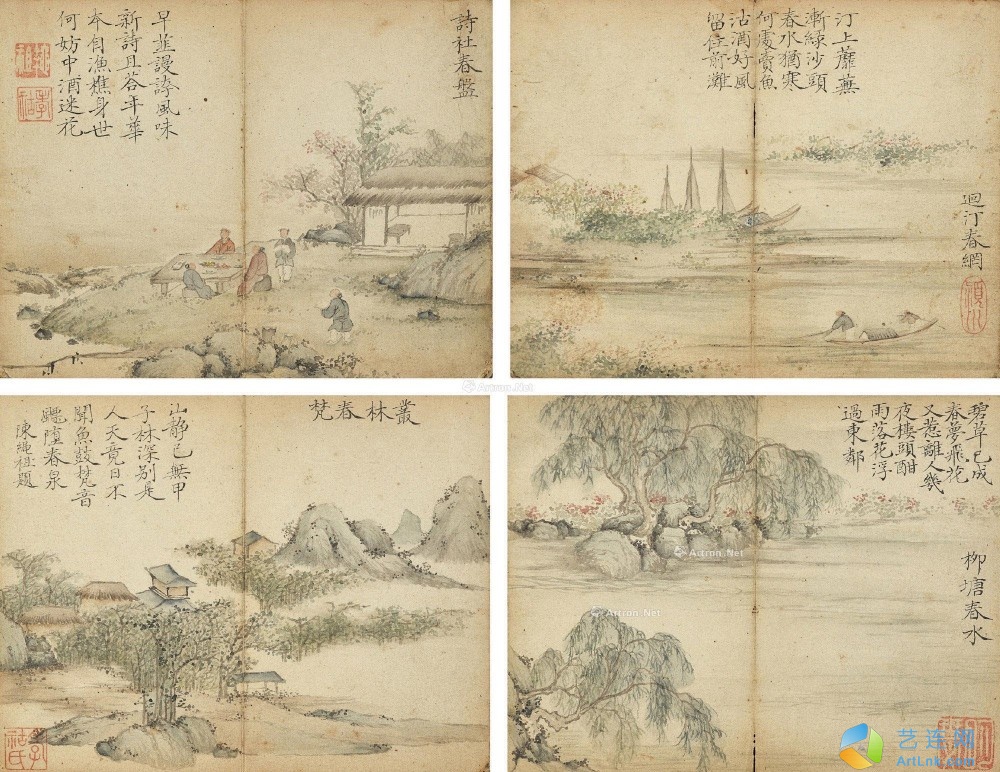 詩社春盤
早韭謾誇風味
新詩且答年華
本自漁樵身世
何妨中酒迷花
汀上蘼蕪
漸綠沙頭
春水猶寒
何處賣魚
沽酒好風
留住前灘
迴汀春網
叢林春梵
山靜已無甲
子林深別是
人天竟日不
聞魚鼓梵音
驄隨春泉
陳繩祖題
碧草已成
春夢飛花
又惹離人幾
夜樓頭酣
雨落花浮
過東鄰
柳塘春水
Artron.Net
Artron.Net
Artron.Net
艺连网
ArtLnk.com